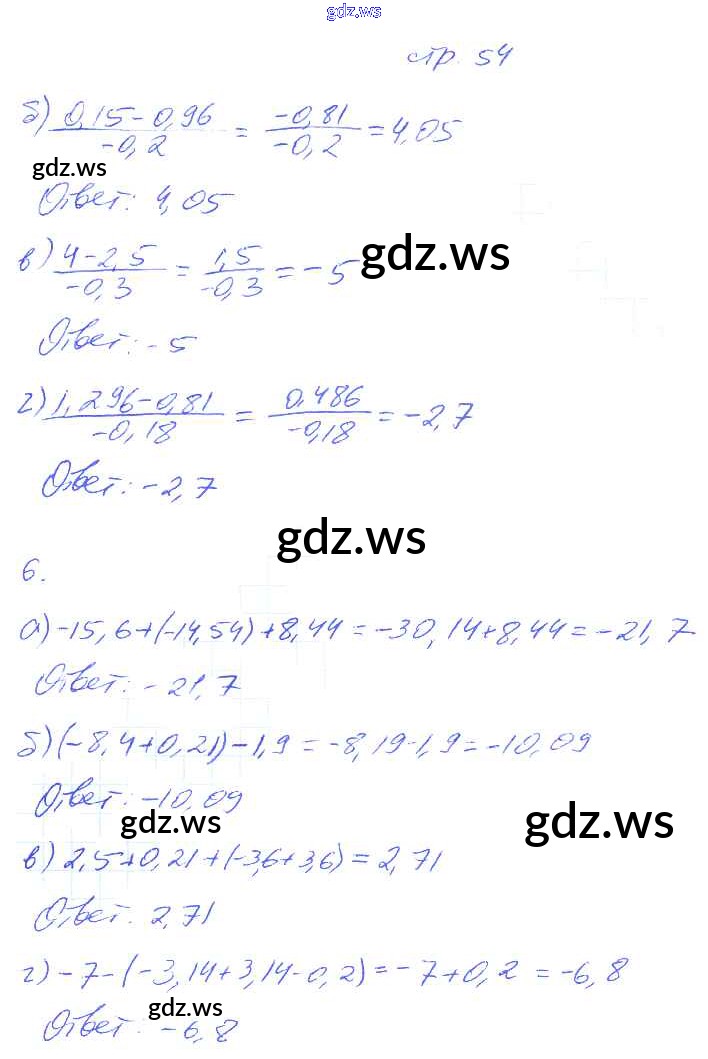 gdz.ws
стр. 54
б) (0,15-0,96)/(-0,2) = (-0,81)/(-0,2) = 4,05
gdz.ws
Ответ: 4,05
в) (4-2,5)/(-0,3) = (1,5)/(-0,3) = -5
gdz.ws
Ответ: -5
г) (1,296-0,81)/(-0,18) = (0,486)/(-0,18) = -2,7
Ответ: -2,7
gdz.ws
6.
а) -15,6+(-14,54)+8,44=-30,14+8,44=-21,7
Ответ: -21,7
б) (-8,4+0,21)-1,9=-8,19-1,9=-10,09
Ответ: -10,09
gdz.ws
gdz.ws
в) 2,5+0,21+(-3,6+3,6)=2,71
Ответ. 2,71
г) -7-(-3,14+3,14-0,2)=-7+0,2=-6,8
gdz.ws
Ответ: -6,8